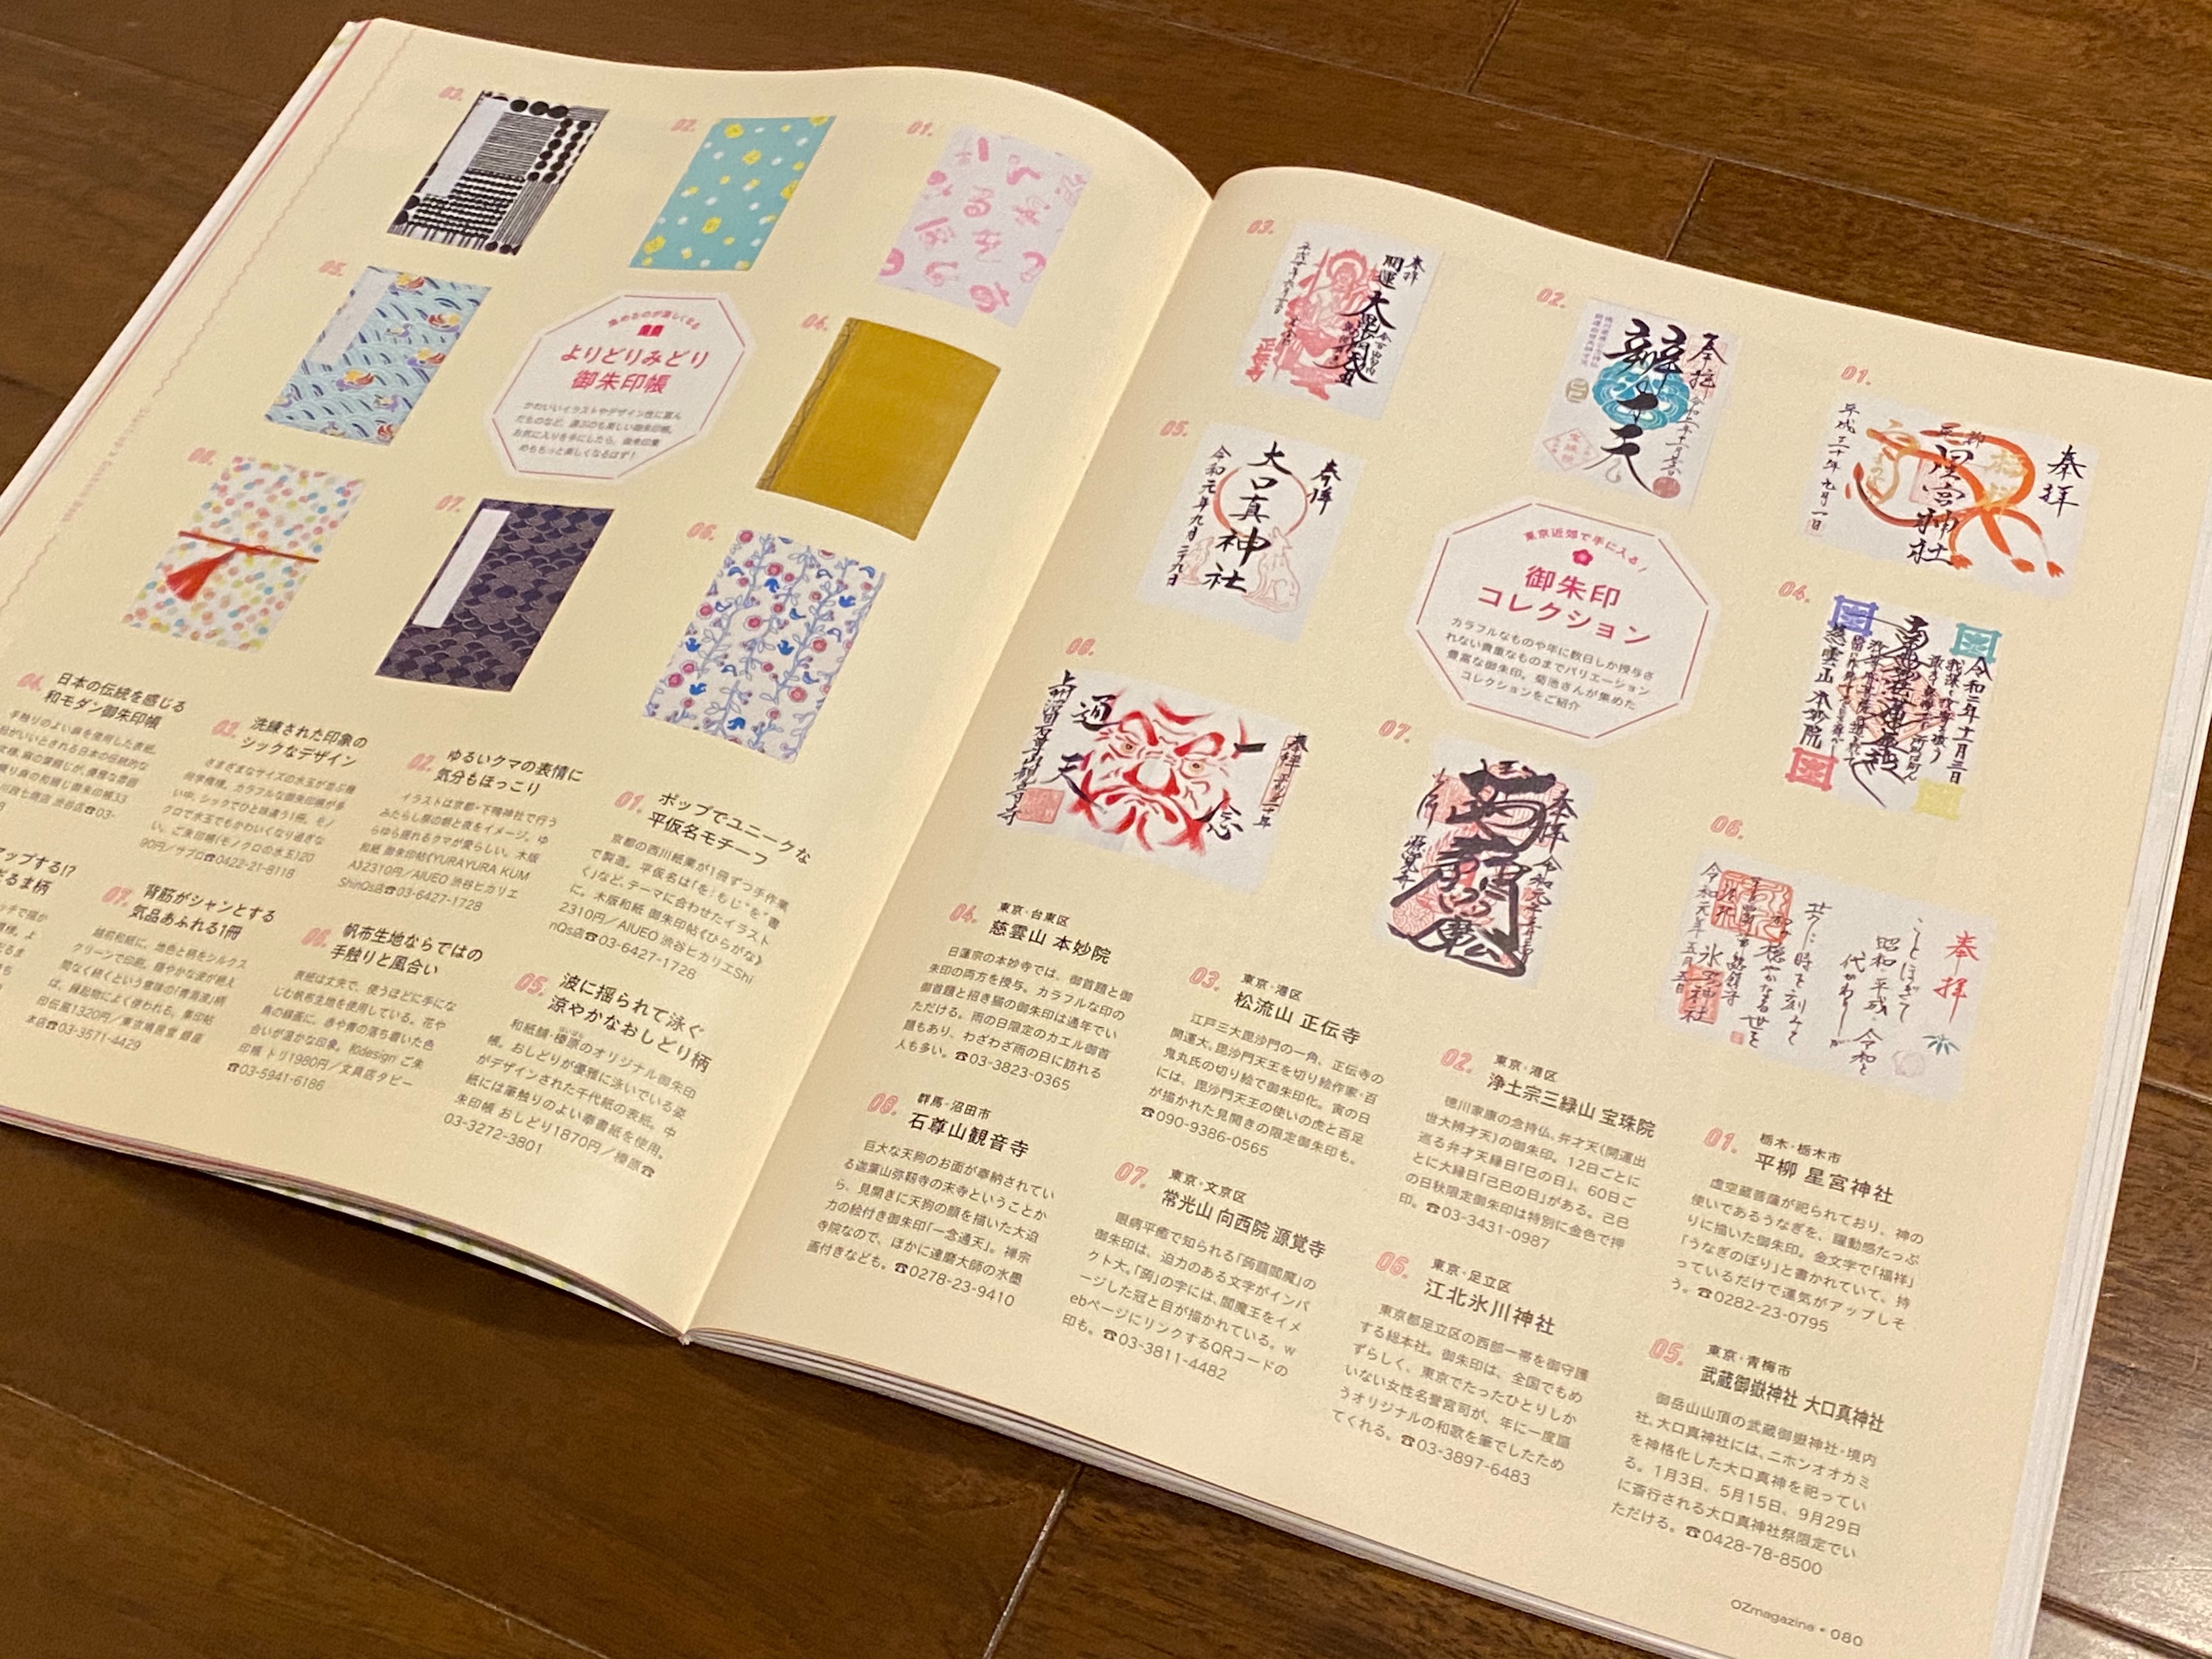 03.
02.
01.
05.
04.
08.
07.
06.
よりどりみどり
御朱印帳
かわいいイラストやデザイン性に富ん
だものなど、選ぶのも楽しい御朱印帳。
お気に入りを手にしたら、御朱印集
めももっと楽しくなるはず!
04. 日本の伝統を感じる
和モダン御朱印帳
03. 洗練された印象の
シックなデザイン
さまざまなサイズの水玉が並ぶ幾
何学模様。カラフルな御朱印帳が多
い中、シックでひと味違う1冊。モノ
クロで水玉でもかわいくなり過ぎな
い。ご朱印帳(モノクロの水玉)20
90円/サブロ☎0422-21-8118
02. ゆるいクマの表情に
気分もほっこり
イラストは京都・下鴨神社で行う
みたらし祭の朝と夜をイメージ。ゆ
らゆら揺れるクマが愛らしい。木版
和紙 御朱印帖《YURAYURA KUM
A》2310円/AIUEO 渋谷ヒカリエ
ShinQs店☎03-6427-1728
01. ポップでユニークな
平仮名モチーフ
京都の西川紙業が1冊ずつ手作業
で製造。平仮名は「を:もじ"を"書
く」など、テーマに合わせたイラスト
に。木版和紙 御朱印帖《ひらがな》
2310円/AIUEO 渋谷ヒカリエShi
nQs店☎03-6427-1728
07. 背筋がシャンとする
気品あふれる1冊
越前和紙に、地色と柄をシルクス
クリーンで印刷。穏やかな波が絶え
間なく続くという意味の「青海波」柄
は、縁起物によく使われる。集印帖
印伝風1320円/東京鳩居堂 銀座
本店☎03-3571-4429
06. 帆布生地ならではの
手触りと風合い
表紙は丈夫で、使うほどに手にな
じむ帆布生地を使用している。花や
鳥の線画に、赤や青の落ち着いた色
合いが温かな印象。和design ご朱
印帳 トリ1980円/文具店タビー
☎03-5941-6186
05. 波に揺られて泳ぐ
涼やかなおしどり柄
和紙舗・榛原のオリジナル御朱印
帳。おしどりが優雅に泳いでいる姿
がデザインされた千代紙の表紙。中
紙には筆触りのよい奉書紙を使用。
朱印帳 おしどり1870円/榛原☎
03-3272-3801
03.
奉拝
開運
正傳寺
02.
奉拝
辨才天
01.
奉拝
星宮神社
平成三十年九月一日
05.
奉拝
大口真神社
令和元年九月二十九日
東京近郊で手に入る
御朱印
コレクション
カラフルなものや年に数日しか授与さ
れない貴重なものまでバリエーション
豊富な御朱印。菊池さんが集めた
コレクションをご紹介
04.
令和二年十一月三日
慈雲山 本妙院
08.
奉拝
一念
通天
07.
奉拝
源覚寺
06.
奉拝
ことほぎて
昭和・平成・令和と
代がわりし
共に時を刻みて
穏やかなる世を
氷川神社
令和元年五月五日
04. 東京・台東区
慈雲山 本妙院
日蓮宗の本妙寺では、御首題と御
朱印の両方を授与。カラフルな印の
御首題と招き猫の御朱印は通年でい
ただける。雨の日限定のカエル御首
題もあり、わざわざ雨の日に訪れる
人も多い。☎03-3823-0365
03. 東京・港区
松流山 正伝寺
江戸三大毘沙門の一角、正伝寺の
開運大、毘沙門天王を切り絵作家・百
鬼丸氏の切り絵で御朱印化。寅の日
には、毘沙門天王の使いの虎と百足
が描かれた見開きの限定御朱印も。
☎090-9386-0565
02. 東京・港区
浄土宗三緑山 宝珠院
徳川家康の念持仏、弁才天(開運出
世大辨才天)の御朱印。12日ごとに
巡る弁才天縁日「巳の日」、60日ご
とに大縁日「己巳の日」がある。己巳
の日秋限定御朱印は特別に金色で押
印。☎03-3431-0987
01. 栃木・栃木市
平柳 星宮神社
虚空蔵菩薩が祀られており、神の
使いであるうなぎを、躍動感たっぷ
りに描いた御朱印。金文字で「福祥」
「うなぎのぼり」と書かれていて、持
っているだけで運気がアップしそ
う。☎0282-23-0795
08. 群馬・沼田市
石尊山観音寺
巨大な天狗のお面が奉納されてい
る迦葉山弥勒寺の末寺ということか
ら、見開きに天狗の顔を描いた大迫
力の絵付き御朱印「一念通天」。禅宗
寺院なので、ほかに達磨大師の水墨
画付きなども。☎0278-23-9410
07. 東京・文京区
常光山 向西院 源覚寺
眼病平癒で知られる「蒟蒻閻魔」の
御朱印は、迫力のある文字がインパ
クト大。「蒟」の字には、閻魔王をイメ
ージした冠と目が描かれている。w
ebページにリンクするQRコードの
印も。☎03-3811-4482
06. 東京・足立区
江北氷川神社
東京都足立区の西部一帯を御守護
する総本社。御朱印は、全国でもめ
ずらしく、東京でたったひとりしか
いない女性名誉宮司が、年に一度謳
うオリジナルの和歌を筆でしたため
てくれる。☎03-3897-6483
05. 東京・青梅市
武蔵御嶽神社 大口真神社
御岳山山頂の武蔵御嶽神社・境内
社。大口真神社には、ニホンオオカミ
を神格化した大口真神を祀ってい
る。1月3日、5月15日、9月29日
に斎行される大口真神社祭限定でい
ただける。☎0428-78-8500
OZmagazine • 080